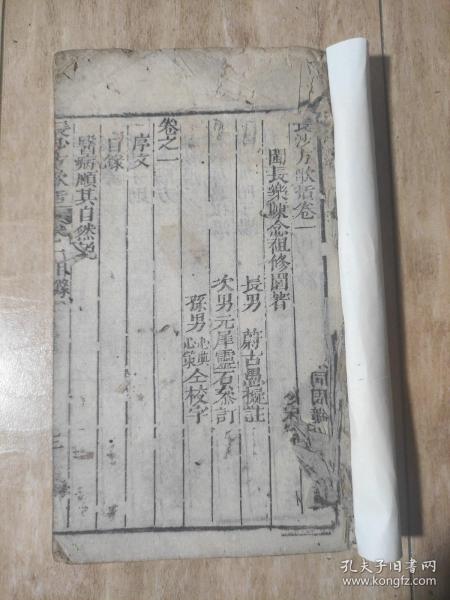 長沙方歌括卷一
閩長樂陳念祖修園著
長男 蔚古愚擬註
次男元犀靈石參訂
孫男 心典 心蘭 仝校字
卷之一
序文
目錄
醫病順其自然說
長沙方歌括
目錄
孔夫子旧书网
www.kongfz.com